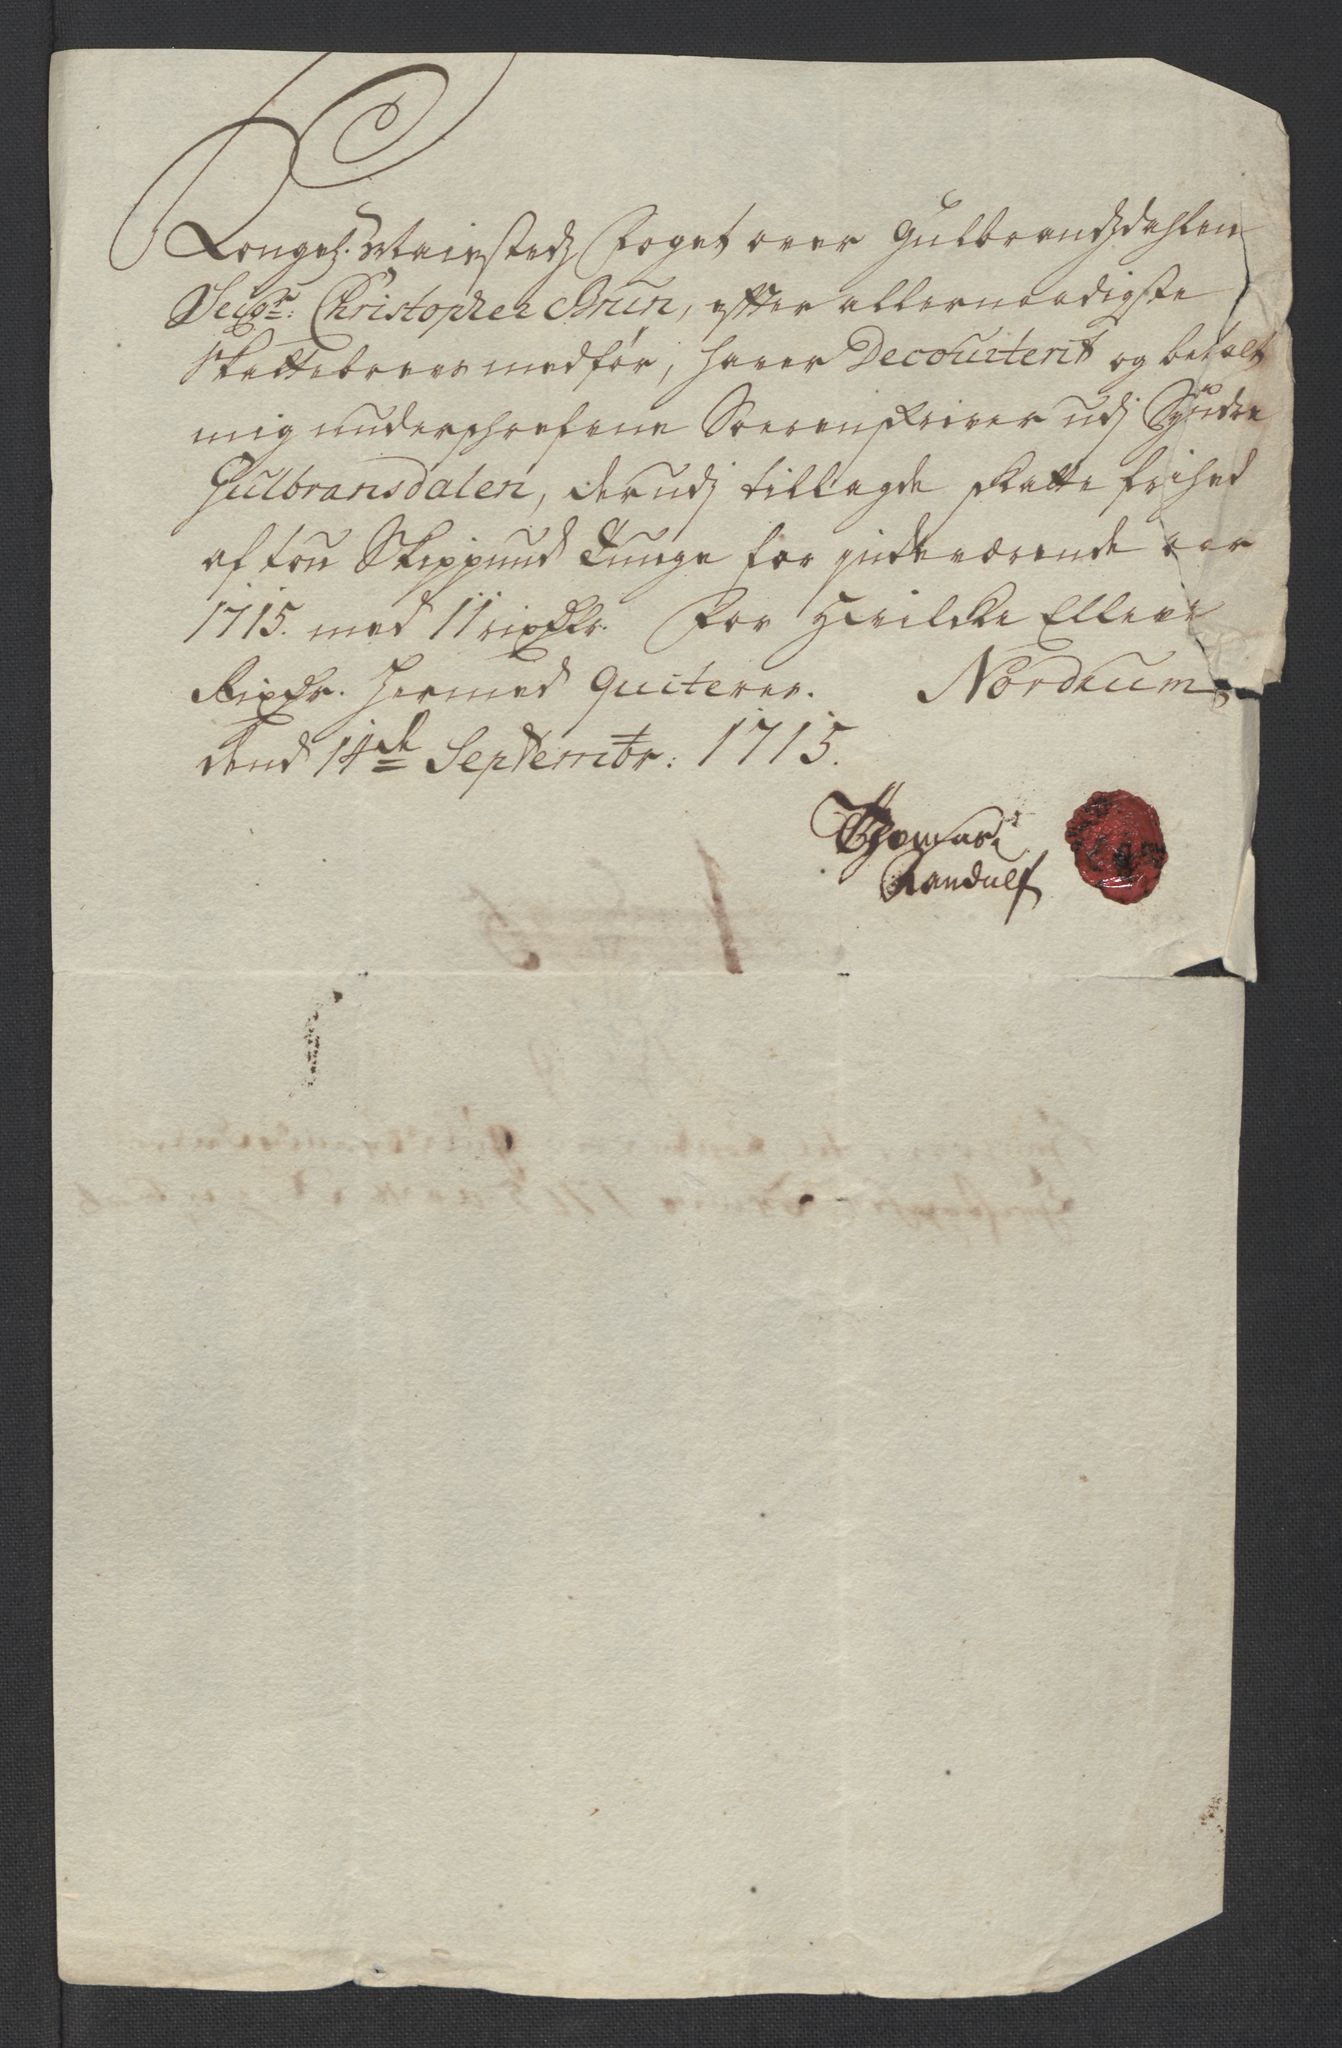 Kongel: Mayestedz Foget over Gulbrandzdahlen
Seigr: Christopher Brun, efter allernaadigste
Skattebrevs medfør, haver Decourterit og betalt
mig underschrefne Sorenskriver udj Syndre
Gulbransdalen, derudj tillagde skatte frihed
af tou Skippund Tunge for indeværende aar
1715. med 11 rixdlr. For hvilcke Elleve
Rixdr. hermed quiterer. Nordrum
dend 14de Septembr: 1715.
Thomas
Randulf